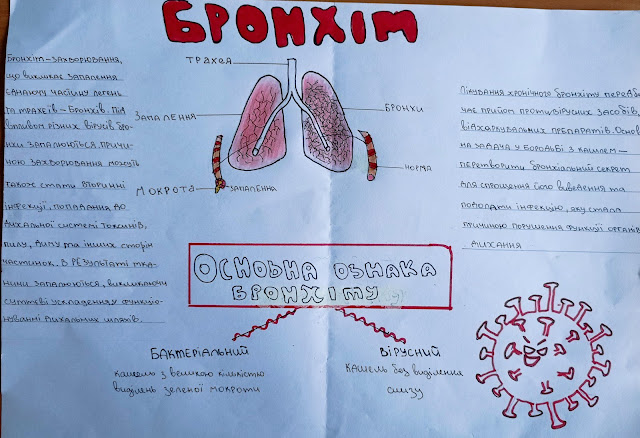 БРОНХІТ
Бронхіт-захворювання,
що викликає запалення
єднаючу частину легень
та трахеїв-бронхів. Під
впливом різних вірусів бро-
нхи запалюються. Причи-
ною захворювання можуть
також стати вторинні
інфекції, попадання до
дихальної системи токсинів,
пилу, диму та інших сторін
частинок. В результаті тка-
нини запалюються, викликаючи
суттєві ускладнення функціо-
нуванні дихальних шляхів.
трахея
запалення
бронхи
мокрота
запалення
норма
Лікування хронічного бронхіту передба
чає прийом противірусних засобів,
відхаркувальних препаратів. Основ
на задача у боротьбі з кашлем-
перетворити бронхіальний секрет
для спрощення його виведення та
подолати інфекцію, яку стала
причиною порушення функції органів
дихання
Основна ознака
бронхіту
Бактеріальний
кашель з великою кількістю
виділень зеленої мокроти
Вірусний
кашель без виділення
слизу